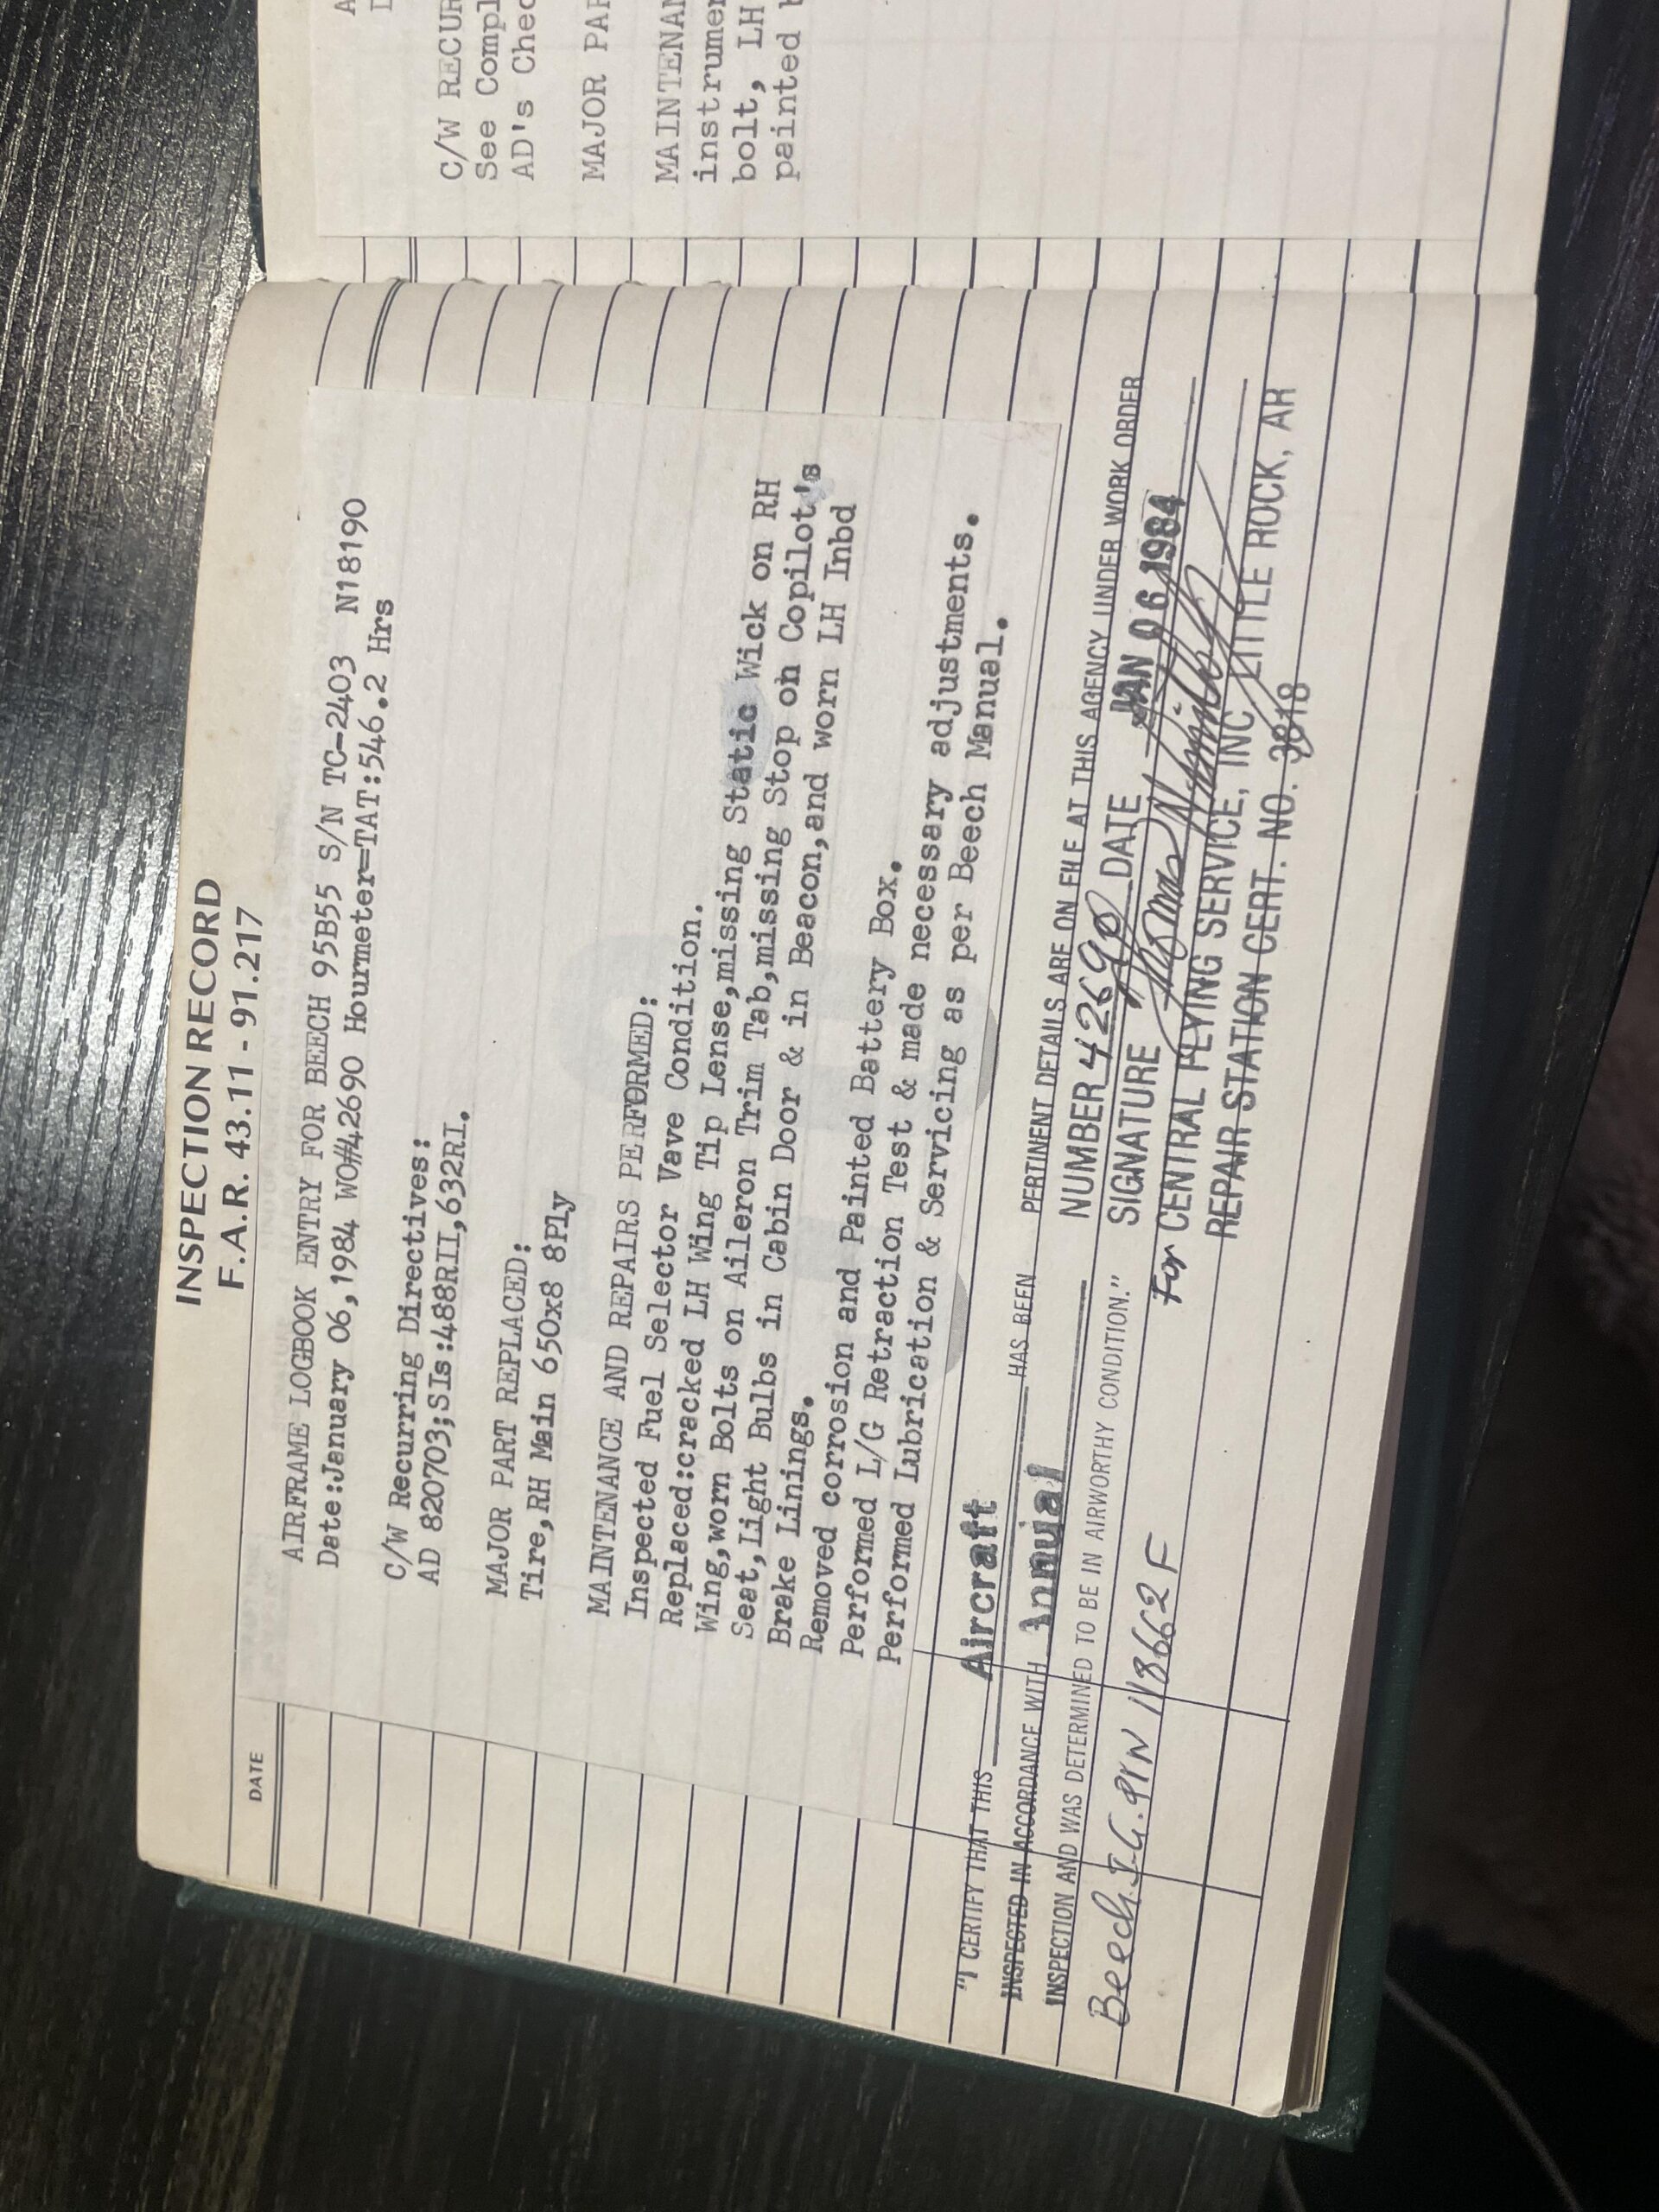 INSPECTION RECORD
F.A.R. 43.11 - 91.217
DATE
AIRFRAME LOGBOOK ENTRY FOR BEECH 95B55 S/N TC-2403 N18190
Date:January 06,1984 WO#42690 Hourmeter=TAT:546.2 Hrs
C/W Recurring Directives:
AD 820703;SIs:488RII,632RI.
MAJOR PART REPLACED:
Tire,RH Main 650x8 8Ply
MAINTENANCE AND REPAIRS PERFORMED:
Inspected Fuel Selector Vave Condition.
Replaced:cracked LH Wing Tip Lense,missing Static Wick on RH
Wing,worn Bolts on Aileron Trim Tab,missing Stop on Copilot's
Seat,Light Bulbs in Cabin Door & in Beacon,and worn LH Inbd
Brake Linings.
Removed corrosion and Painted Battery Box.
Performed L/G Retraction Test & made necessary adjustments.
Performed Lubrication & Servicing as per Beech Manual.
"I CERTIFY THAT THIS Aircraft HAS BEEN
INSPECTED IN ACCORDANCE WITH Annual
INSPECTION AND WAS DETERMINED TO BE IN AIRWORTHY CONDITION."
Beech I.G. P/N 118662F
PERTINENT DETAILS ARE ON FILE AT THIS AGENCY UNDER WORK ORDER
NUMBER 42690 DATE JAN 06 1984
SIGNATURE
For CENTRAL FLYING SERVICE, INC. LITTLE ROCK, AR
REPAIR STATION CERT. NO. 3818
C/W RECUR
See Compl
AD's Chec
MAJOR PAR
MAINTENAN
instrumen
bolt, LH
painted b